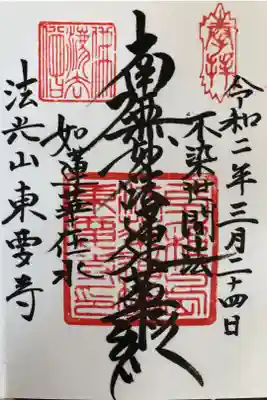 奉拝
令和二年三月二十四日
不染世間法
南無妙法蓮華経
如蓮華在水
法光山東雲寺